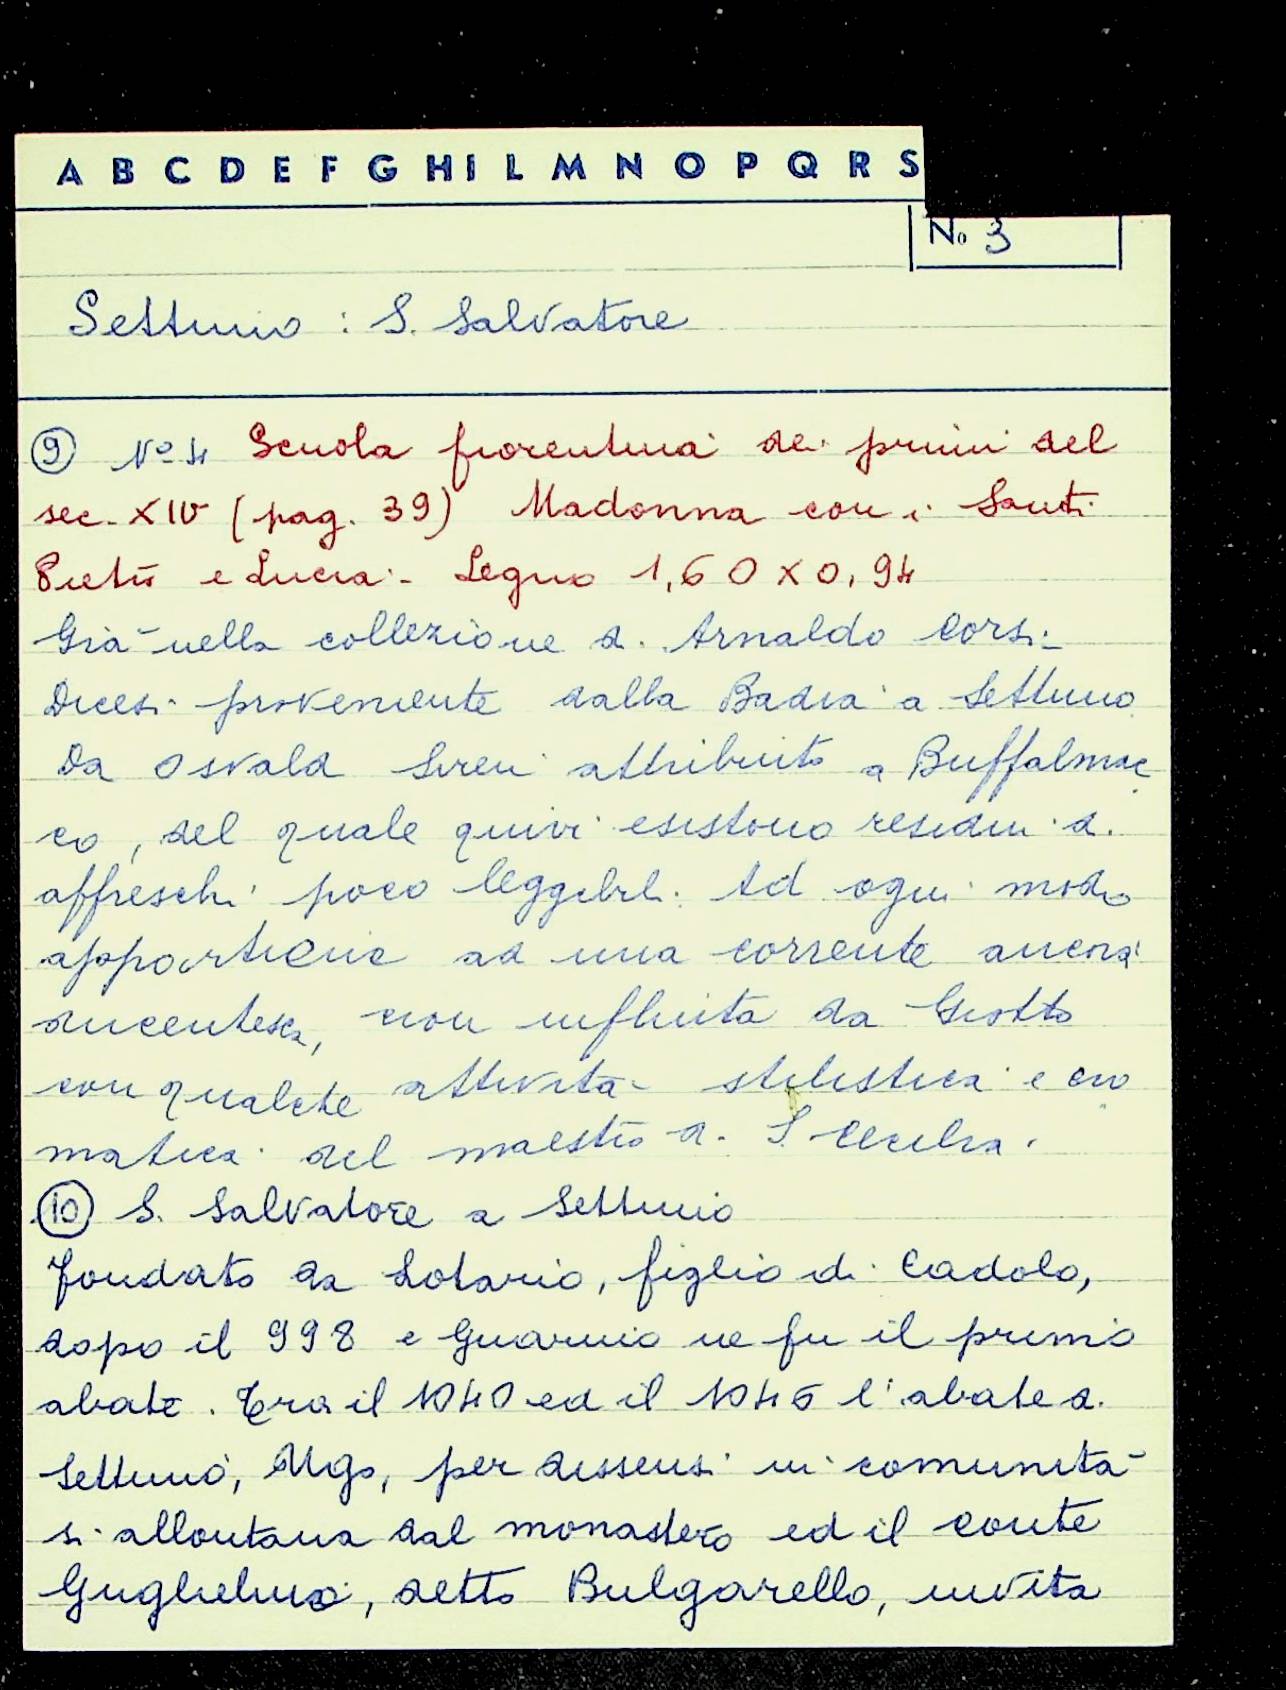 A B C D E F G H I L M N O P Q R S
No 3
Settimo : S. Salvatore
9 Nº 4 Scuola fiorentina dei primi del
sec. XIV (pag. 39) Madonna con i Santi
Pietro e Lucia - Legno 1,60 x 0,94
Già nella collezione di Arnaldo Corsi -
Dicesi proveniente dalla Badia a Settimo
Da Osvald Siren attribuito a Buffalmac
co, del quale quivi esistono residui di
affreschi poco leggibili. Ad ogni modo
appartiene ad una corrente ancora
ducentesca, non influita da Giotto
con qualche attività stilistica e cro
matica del maestro di S. Cecilia.
10 S. Salvatore a Settimo
Fondato da Lotario, figlio di Cadolo,
dopo il 998 e Guarnio ne fu il primo
abate. Tra il 1040 ed il 1046 l'abate di
Settimo, Ugo, per dissensi in comunità
si allontana dal monastero ed il conte
Guglielmo, detto Bulgarello, invita